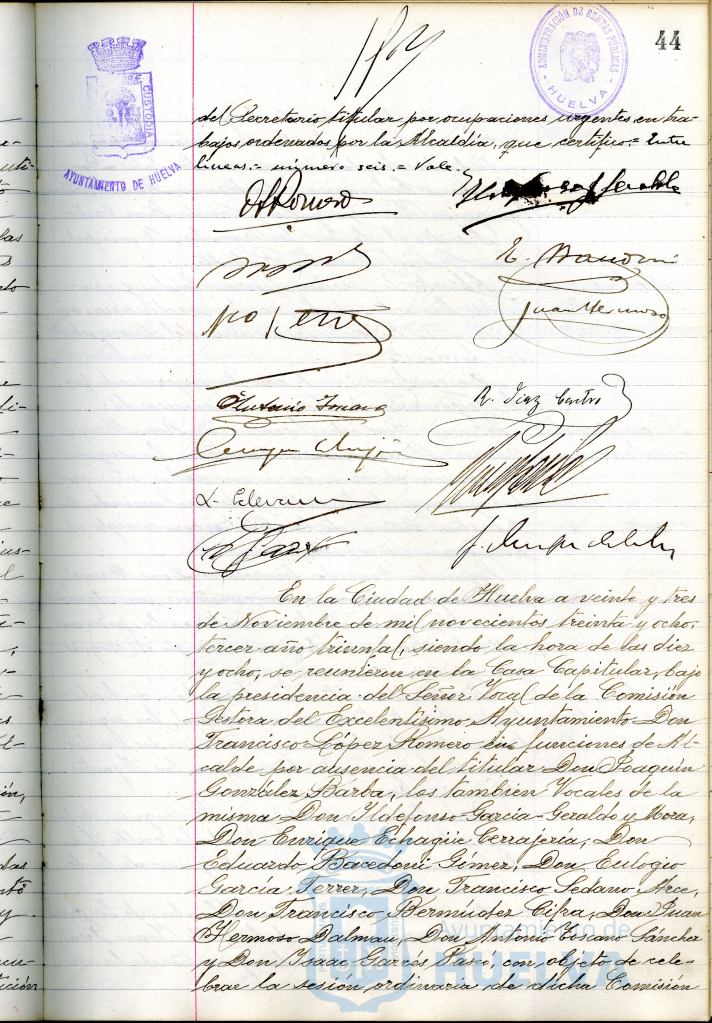 44
ADMINISTRACIÓN DE RENTAS PÚBLICAS
- HUELVA -
CUSTODIA
AYUNTAMIENTO DE HUELVA
del Secretario titular por ocupaciones urgentes en tra-
bajos ordenados por la Alcaldía, que certifico.= Entre
lineas.= número seis.= Vale.
Juan Hermoso
Antonio Toscano
R. Diaz Castro
En la Ciudad de Huelva a veinte y tres
de Noviembre de mil novecientos treinta y ocho,
tercer año triunfal, siendo la hora de las diez
y ocho, se reunieron en la Casa Capitular, bajo
la presidencia del Señor Vocal de la Comisión
Gestora del Excelentísimo Ayuntamiento Don
Francisco López Romero en funciones de Al-
calde por ausencia del titular Don Joaquín
González Barba, los tambien Vocales de la
misma Don Ildefonso García-Geraldo y Mora,
Don Enrique Echagüe Cerrajería, Don
Eduardo Bacedoni Gómez, Don Eulogio
García Ferrer, Don Francisco Sedano Arce,
Don Francisco Bermúdez Cifra, Don Juan
Hermoso Dalmau, Don Antonio Toscano Sánchez
y Don Isaac Garcés Pasco, con objeto de cele-
brar la sesión ordinaria de dicha Comisión
Ayuntamiento de
HUELVA